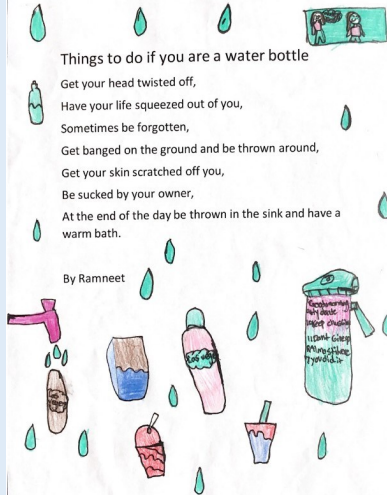 Things to do if you are a water bottle
Get your head twisted off,
Have your life squeezed out of you,
Sometimes be forgotten,
Get banged on the ground and be thrown around,
Get your skin scratched off you,
Be sucked by your owner,
At the end of the day be thrown in the sink and have a
warm bath.
By Ramneet